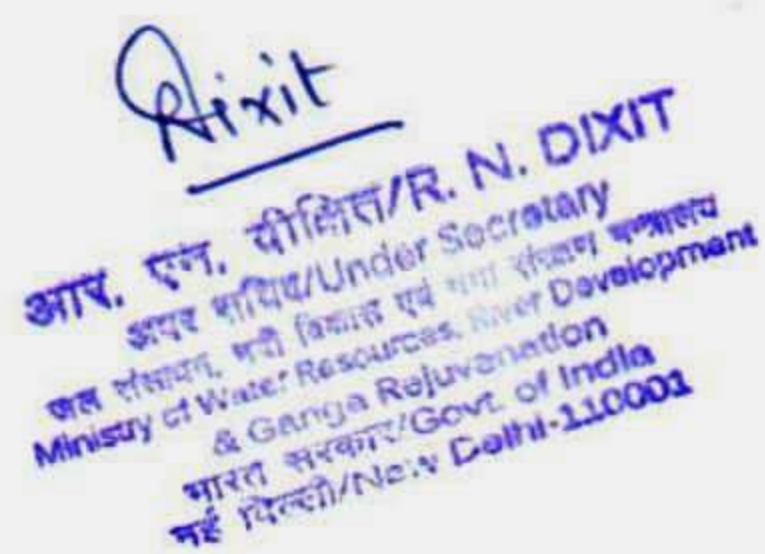 Dixit
आर. एन. दीक्षित/R. N. DIXIT
अवर सचिव/Under Secretary
जल संसाधन, नदी विकास एवं गंगा संरक्षण मन्त्रालय
Ministry of Water Resources, River Development
& Ganga Rejuvenation
भारत सरकार/Govt. of India
नई दिल्ली/New Delhi-110001